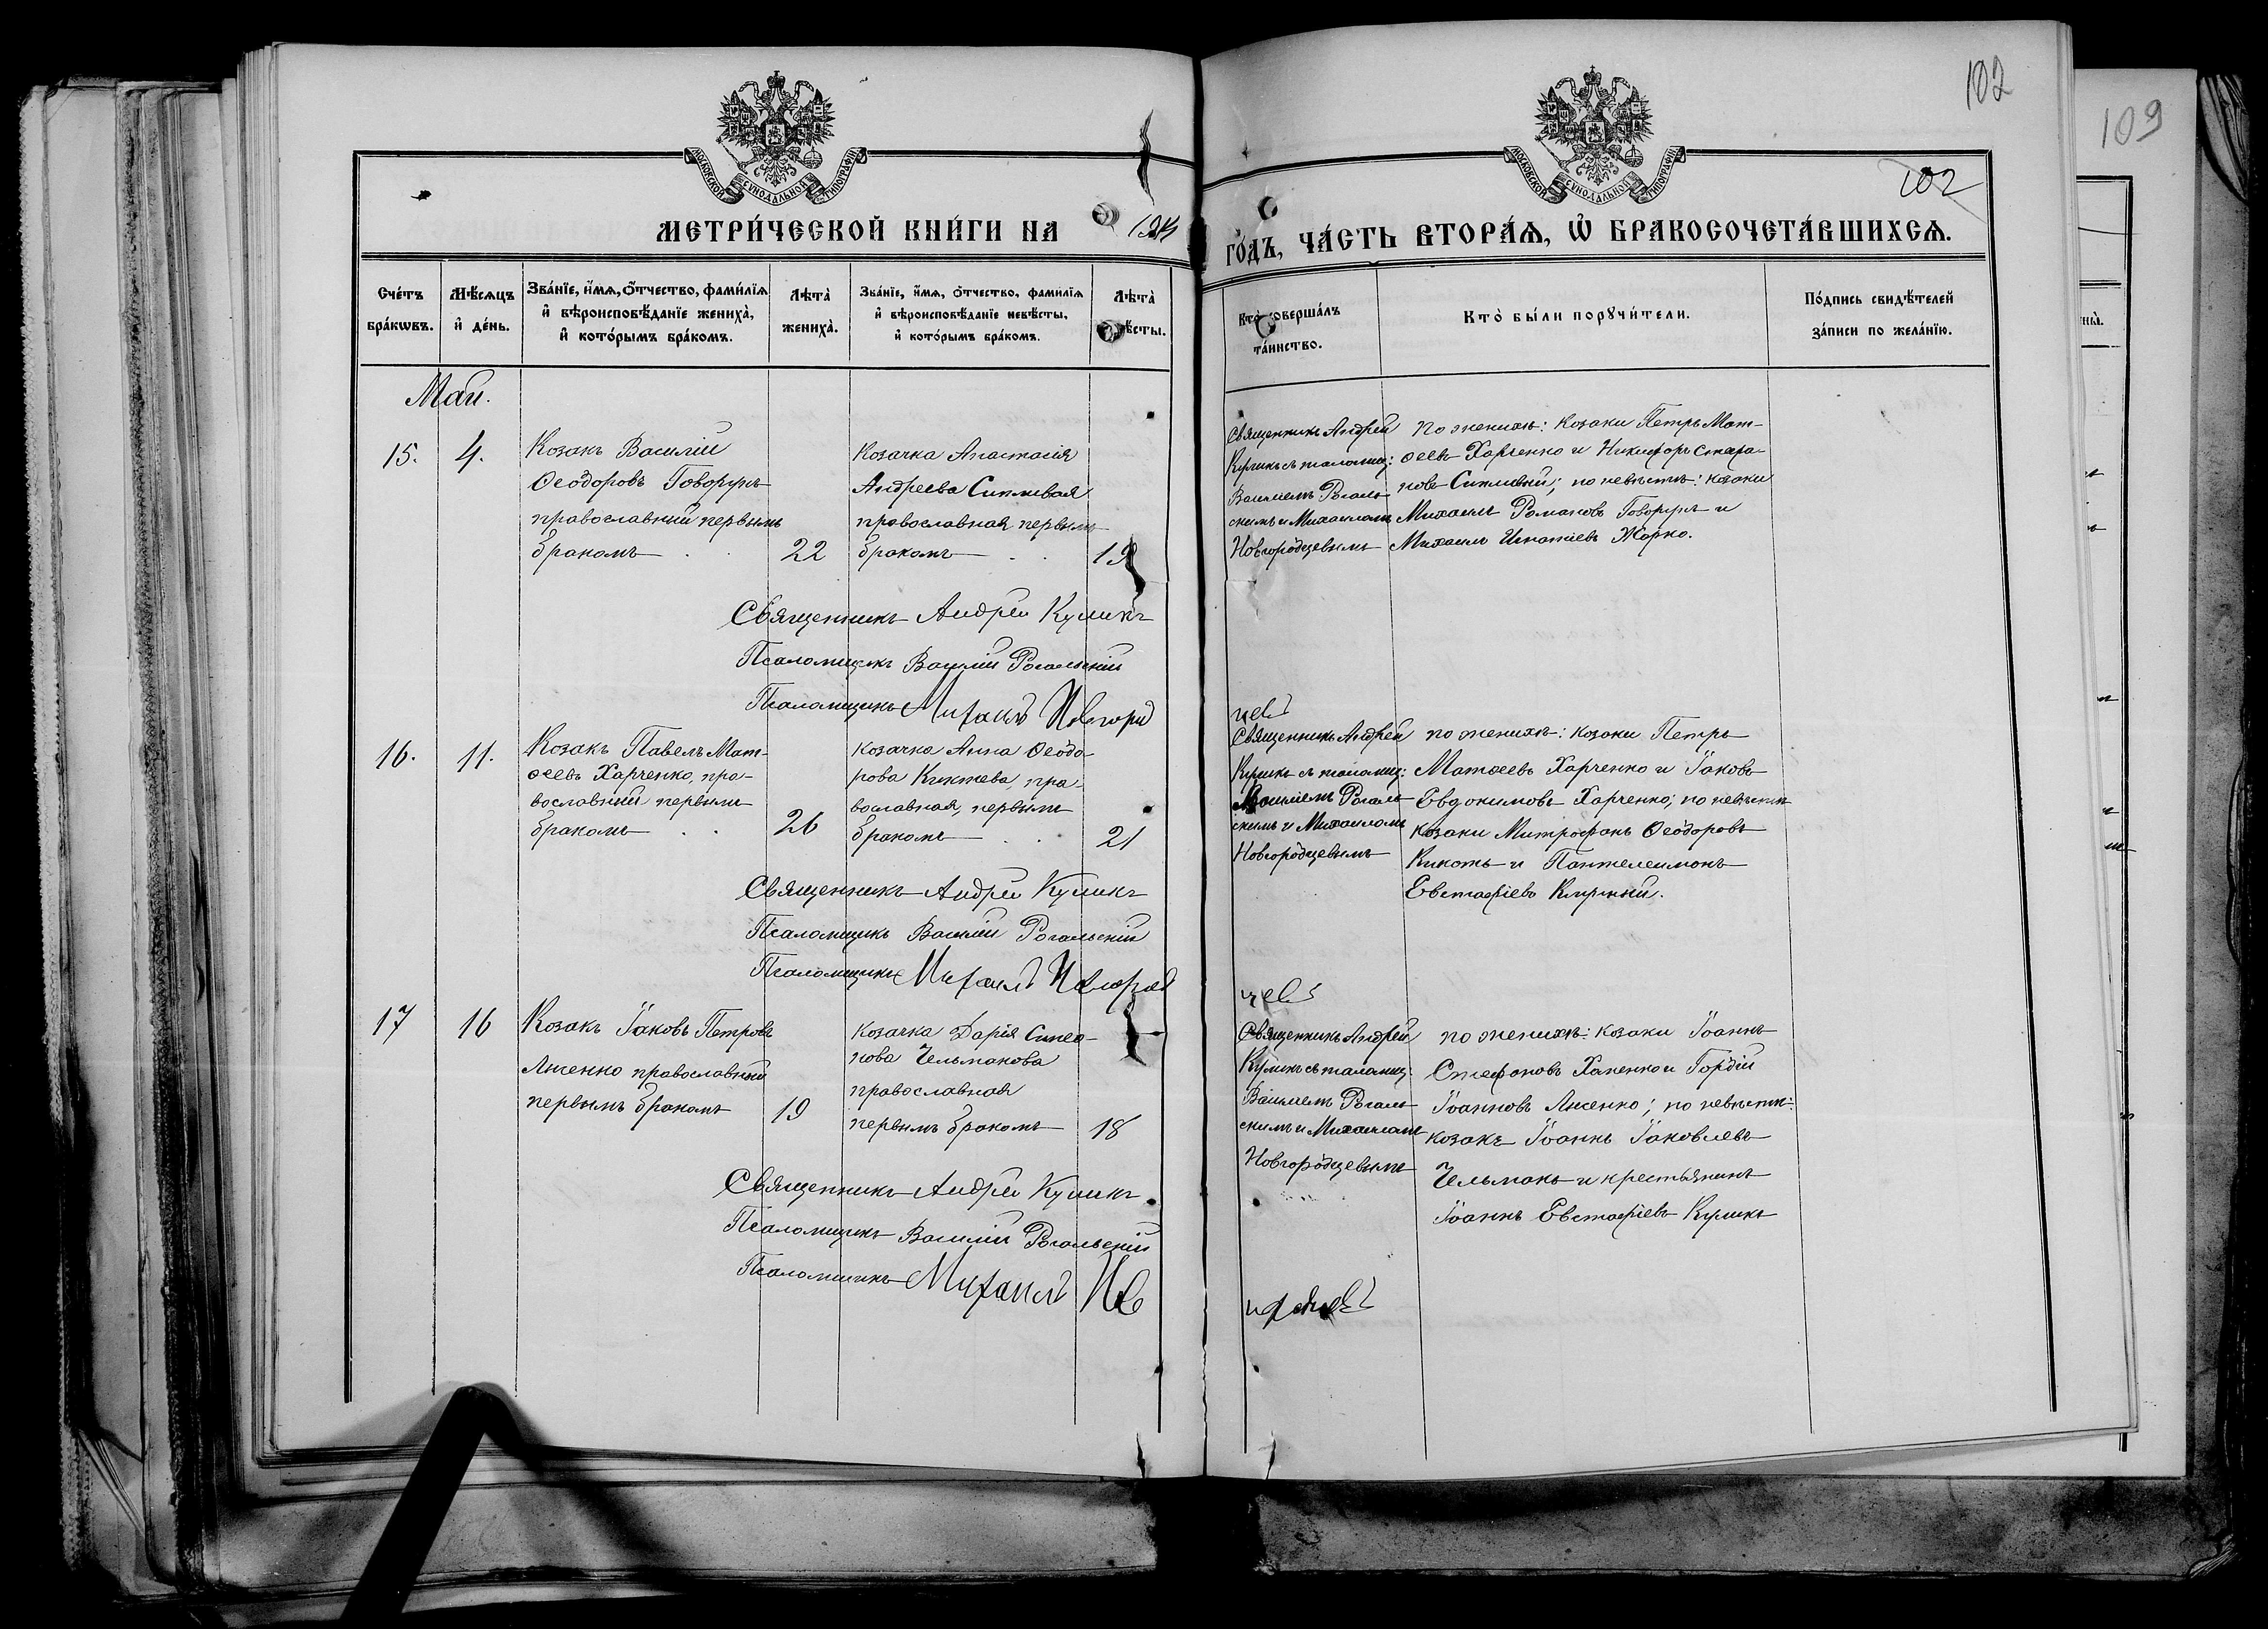 102
109
МОСКОВСКОЙ СѴНОДАЛЬНОЙ ТИПОГРАФІИ
МОСКОВСКОЙ СѴНОДАЛЬНОЙ ТИПОГРАФІИ
102
МЕТРИ́ЧЕСКОЙ КНИ́ГИ НА
ГО́ДЪ, ЧА́СТЬ ВТОРА́Ѧ, Ѽ БРАКОСОЧЕТА́ВШИХСѦ.
Сче́тъ бра́кѡвъ.
Мѣ́сѧцъ и҆ де́нь.
Зва́нїе, и҆́мѧ, ѻ҆́тчество, фами́лїѧ и҆ вѣроисповѣ́данїе жениха̀, и҆ кото́рымъ бра́комъ.
Лѣ́та̀ жениха̀.
Зва́нїе, и҆́мѧ, ѻ҆́тчество, фами́лїѧ и҆ вѣроисповѣ́данїе невѣ́сты, и҆ кото́рымъ бра́комъ.
Лѣ́та̀ ѣ́сты.
Кто̀ соверша́лъ та́инство.
Кто̀ бы́ли порꙋчи́тели.
По́дпись свидѣ́телей за́писи по жела́нїю.
Май.
15.
4.
Козакъ Василій
Ѳеодоровъ Говорунъ
православный первымъ
бракомъ
22
Козачка Анастасія
Андреева Сипливая
православная первымъ
бракомъ
19
Священникъ Андрей
Куликъ съ псаломщ:
Василіемъ Рогаль-
скимъ и Михаиломъ
Новгородцевымъ
по женихѣ: козаки Петръ Мат-
ѳеевъ Харченко и Никифоръ
Сипливый; по невѣстѣ: козаки
Михаилъ Романовъ Говорунъ и
Михаилъ Игнатіевъ Жорко.
Священникъ Андрей Куликъ
Псаломщикъ Василій Рогальскій
Псаломщикъ Михаилъ Новгород
цевъ
16.
11.
Козакъ Павелъ Мат-
ѳеевъ Харченко, пра-
вославный первымъ
бракомъ
26
Козачка Анна Ѳеодо-
рова пра-
вославная, первымъ
бракомъ
21
Священникъ Андрей
Куликъ съ псаломщ:
Василіемъ Рогаль-
скимъ и Михаиломъ
Новгородцевымъ
по женихѣ: козаки Петръ
Матѳеевъ Харченко и Іаковъ
Евдокимовъ Харченко; по невѣстѣ
козаки Митрофанъ Ѳеодоровъ
Кикоть и Пантелеимонъ
Евстафіевъ
Священникъ Андрей Куликъ
Псаломщикъ Василій Рогальскій
Псаломщикъ Михаилъ Новгород
цевъ
17
16
Козакъ Іаковъ Петровъ
Лысенко православный
первымъ бракомъ
19
Козачка Дарія Симео-
нова Чельмакова
православная
первымъ бракомъ
18
Священникъ Андрей
Куликъ съ псаломщ:
Василіемъ Рогаль-
скимъ и Михаиломъ
Новгородцевымъ
по женихѣ: козаки Іоаннъ
Стефановъ Ханенко и Гордій
Іоанновъ Лысенко; по невѣстѣ:
козакъ Іоаннъ Іаковлевъ
Чельмакъ и крестьянинъ
Іоаннъ Евстафіевъ Куликъ
Священникъ Андрей Куликъ
Псаломщикъ Василій Рогальскій
Псаломщикъ Михаилъ Нов
городцевъ